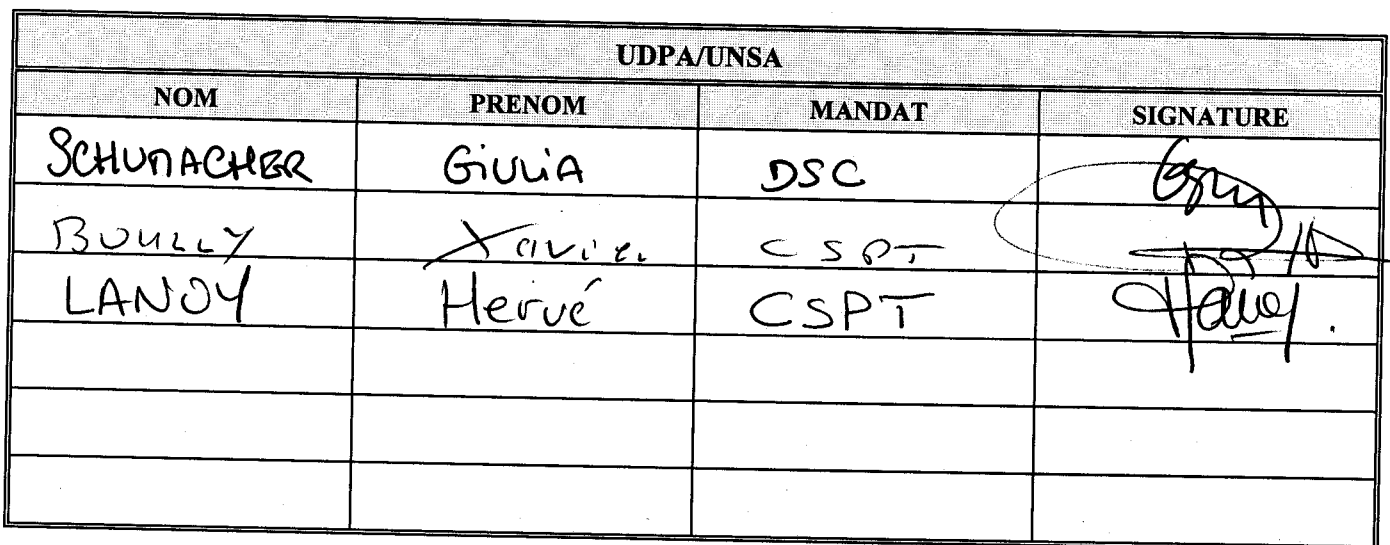 UDPA/UNSA
NOM PRENOM MANDAT SIGNATURE
SCHUMACHER GIULIA DSC
Xavier CSPT
LANOY Hervé CSPT